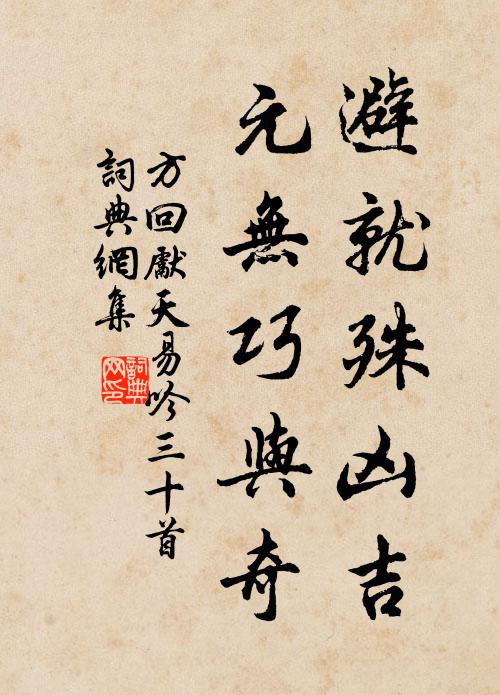 避就殊凶吉
元無巧與奇
方回獻天易吟三十首
詞典網集
詞典網印